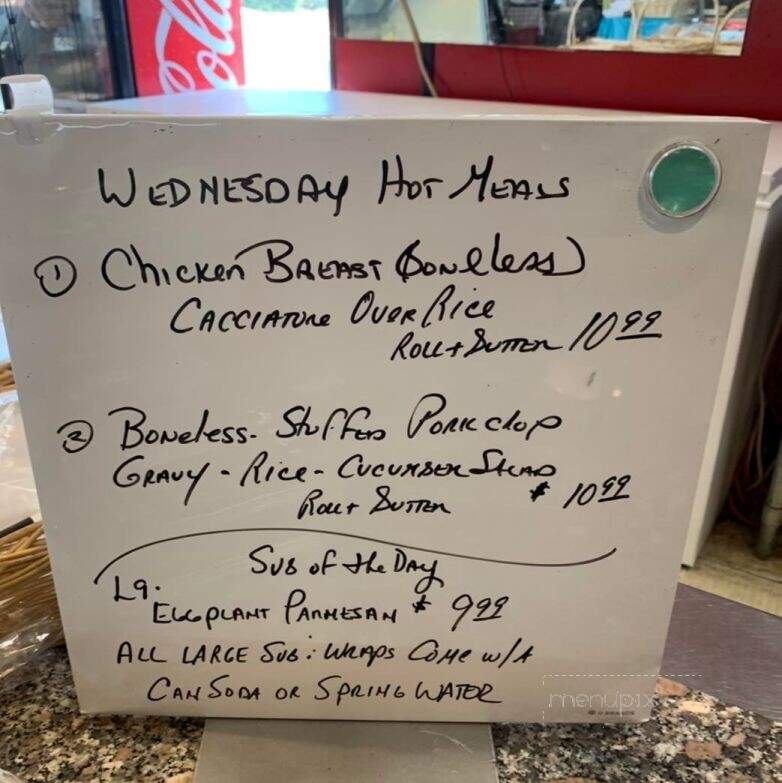 Cola
WEDNESDAY HOT MEALS
① Chicken BREAST (BONeless)
CACCIATORE OVER Rice
ROLL + BUTTER 10 99
② Boneless - Stuffed PORK chop
GRAVY - Rice - CUCUMBER SALAD
Roll + BUTTER $ 10 99
SUB OF the DAY
Lg.
EGGPLANT PARMESAN $ 9 99
ALL LARGE SUB : WRAPS COME W/A
CAN SODA OR SPRING WATER
menupix